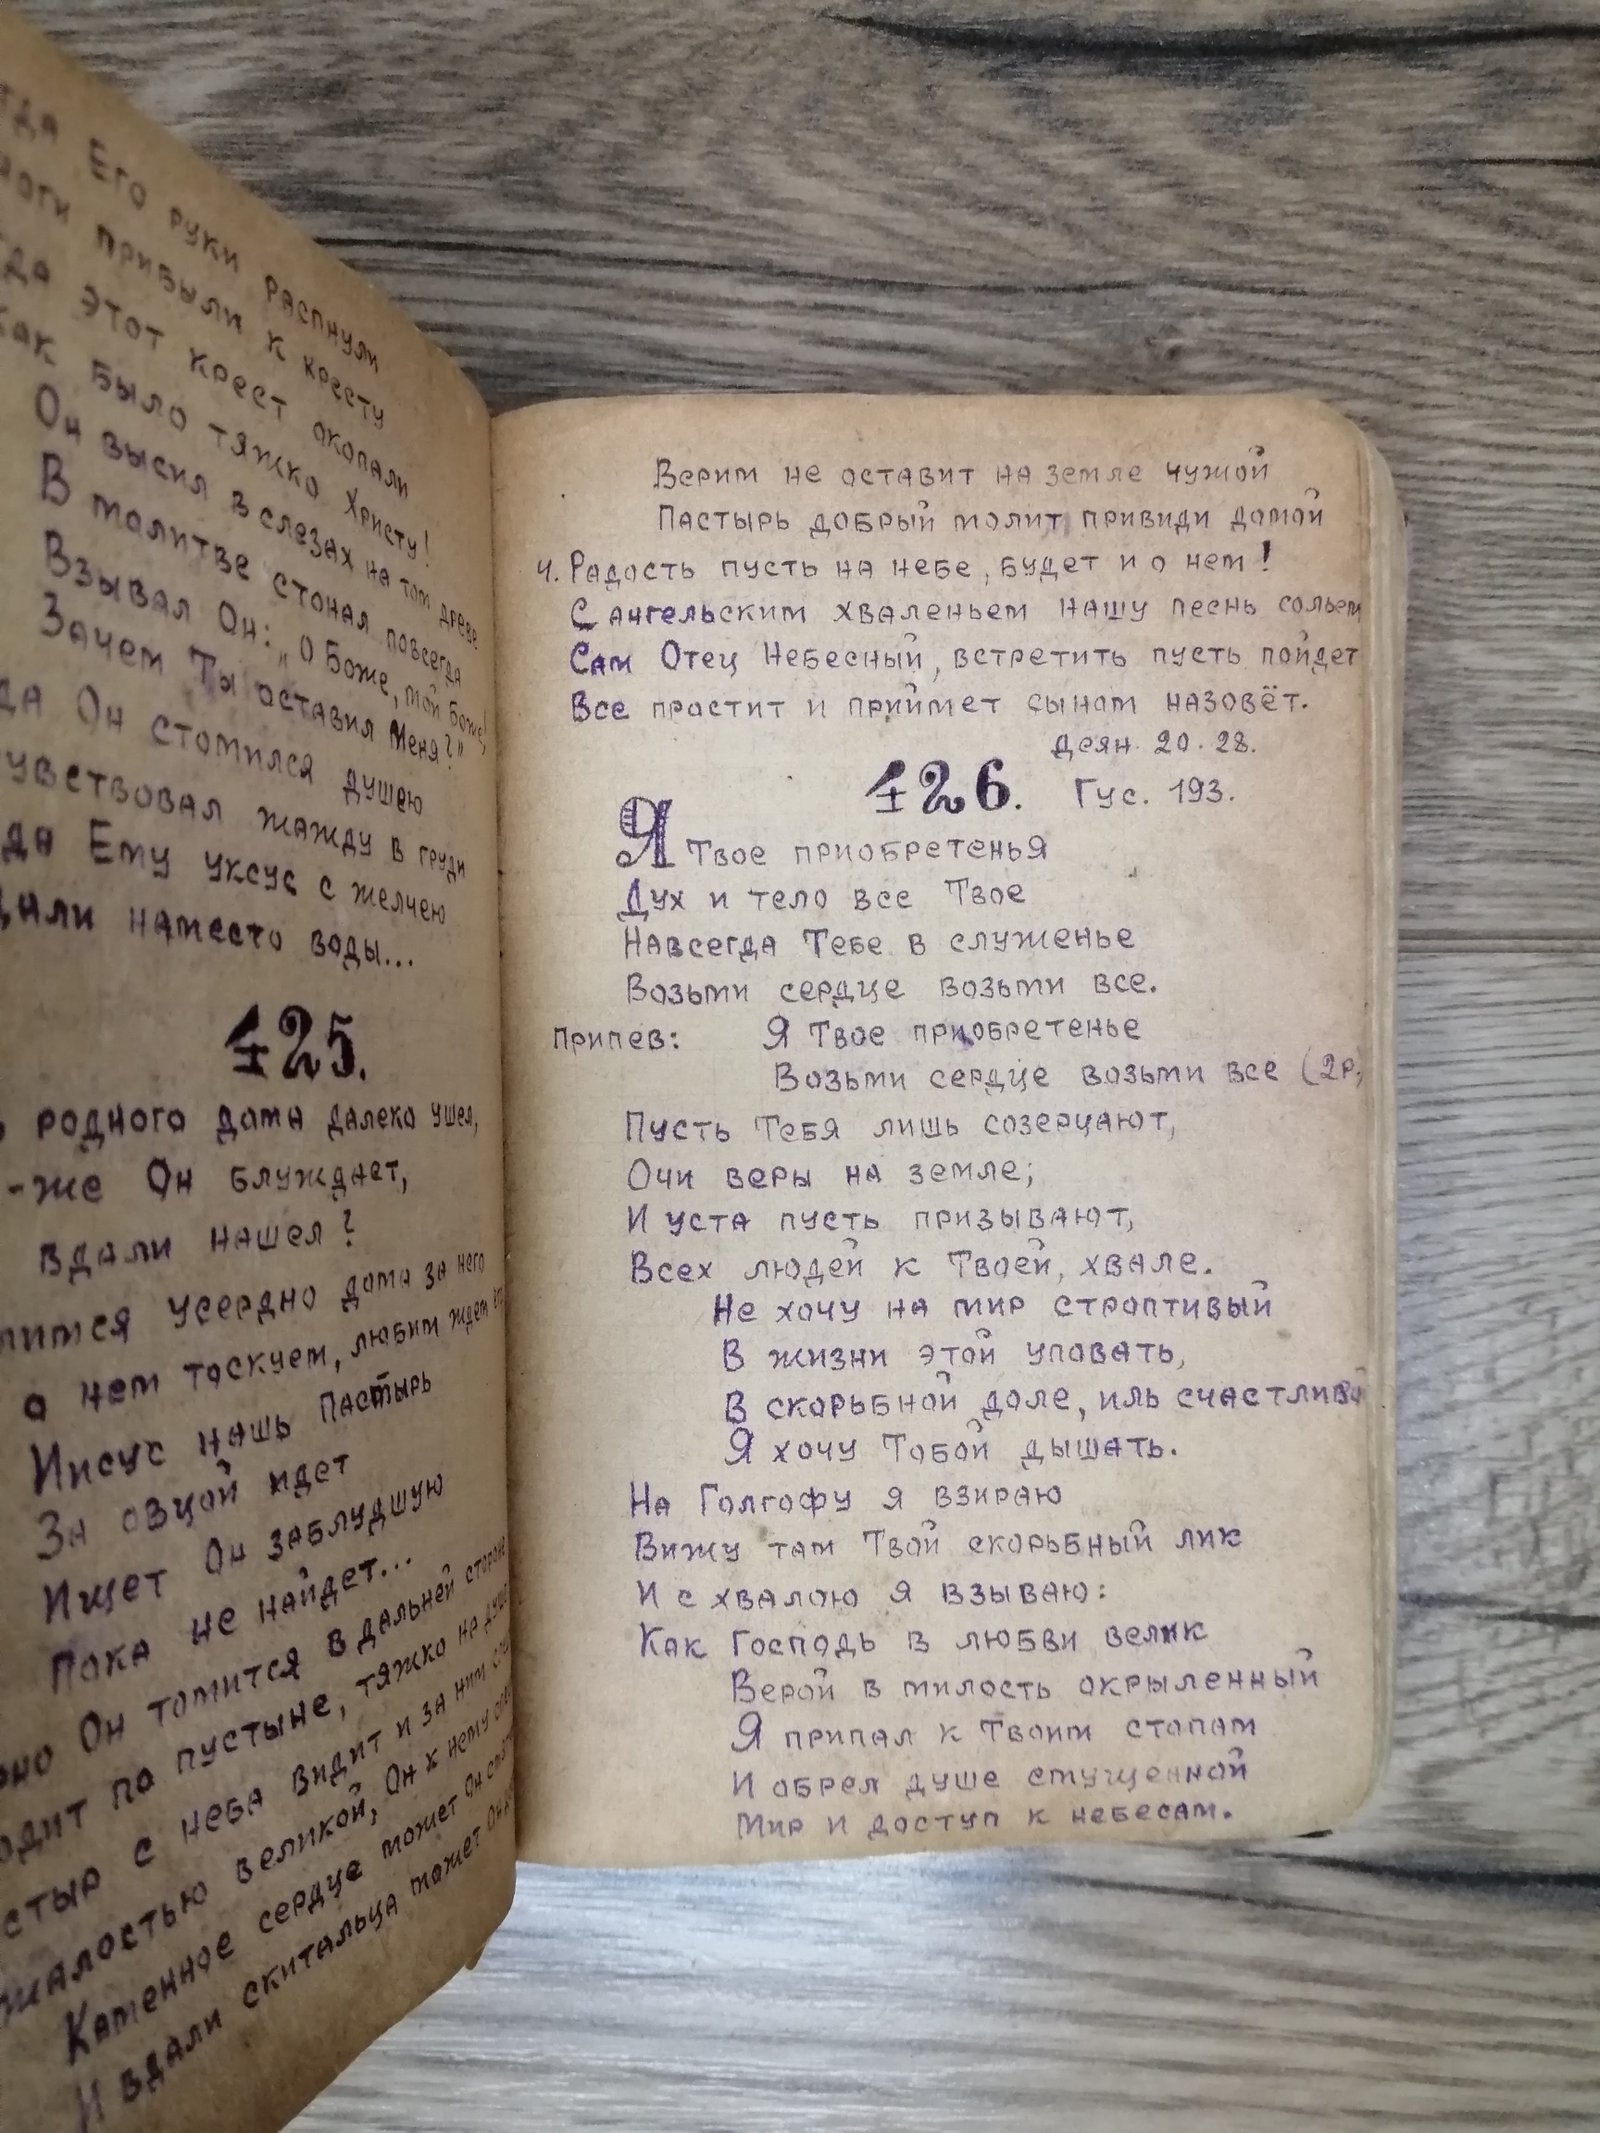 Его руки распнули
прибыли к кресту
этот крест окопали
как было тяжко Христу!
Он высил в слезах на том древе
В молитве стонал повсегда
Взывал Он: „О Боже, мой Боже,
Зачем Ты оставил Меня?"
Он стомился душею
жажду в груди
Ему уксус с желчею
наместо воды...
425.
родного дома далеко ушел,
-же Он блуждает,
вдали нашел?
усердно дома за него
о нем тоскует, любим ждем
Иисус нашь Пастырь
За овцой идет
Ищет Он заблудшую
Пока не найдет...
Он томится в дальней стороне
по пустыне, тяжко на душе
с неба видит и за ним
жалостью великой, Он к нему
Каменное сердце может Он
И вдали скитальца может Он
Верим не оставит на земле чужой
Пастырь добрый молит привиди домой
4. Радость пусть на небе, будет и о нем!
С ангельским хваленьем нашу песнь сольем
Сам Отец Небесный, встретить пусть пойдет
Все простит и приймет сыном назовёт.
Деян. 20. 28.
426. Гус. 193.
Я Твое приобретенья
Дух и тело все Твое
Навсегда Тебе в служенье
Возьми сердце возьми все.
Припев: Я Твое приобретенье
Возьми сердце возьми все (2р.
Пусть Тебя лишь созерцают,
Очи веры на земле;
И уста пусть призывают,
Всех людей к Твоей, хвале.
Не хочу на мир строптивый
В жизни этой уповать,
В скорьбной доле, иль счастливой
Я хочу Тобой дышать.
На Голгофу я взираю
Вижу там Твой скорьбный лик
И с хвалою я взываю:
Как Господь в любви велик
Верой в милость окрыленный
Я припал к Твоим стопам
И обрел душе смущенной
Мир и доступ к небесам.